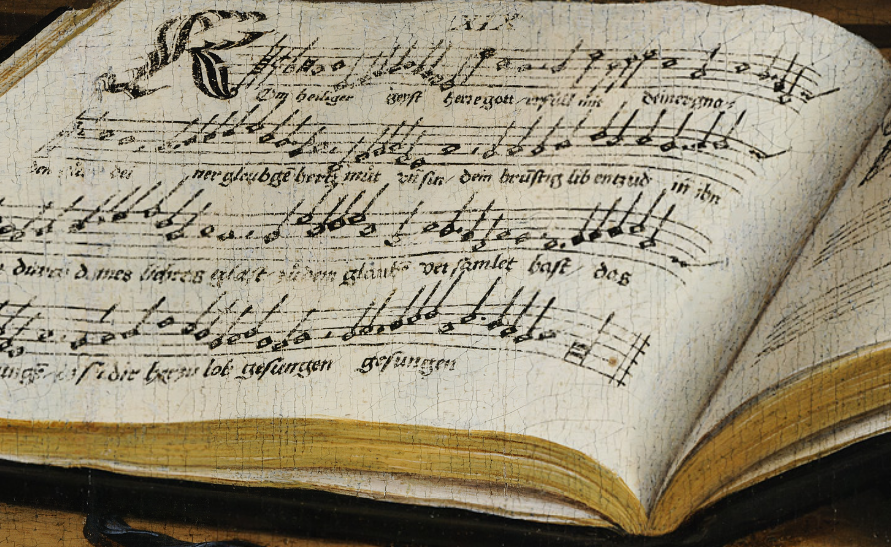 XIX
Kom heiliger geyst herre gott erfüll mit deiner gna=
ner glaubgē hertz mut vñ sin dein brüstig lib entzud in ihn
durch deines lichtes glast zu dem glaubē versamlet hast das
dir herre lob gesungen gesungen